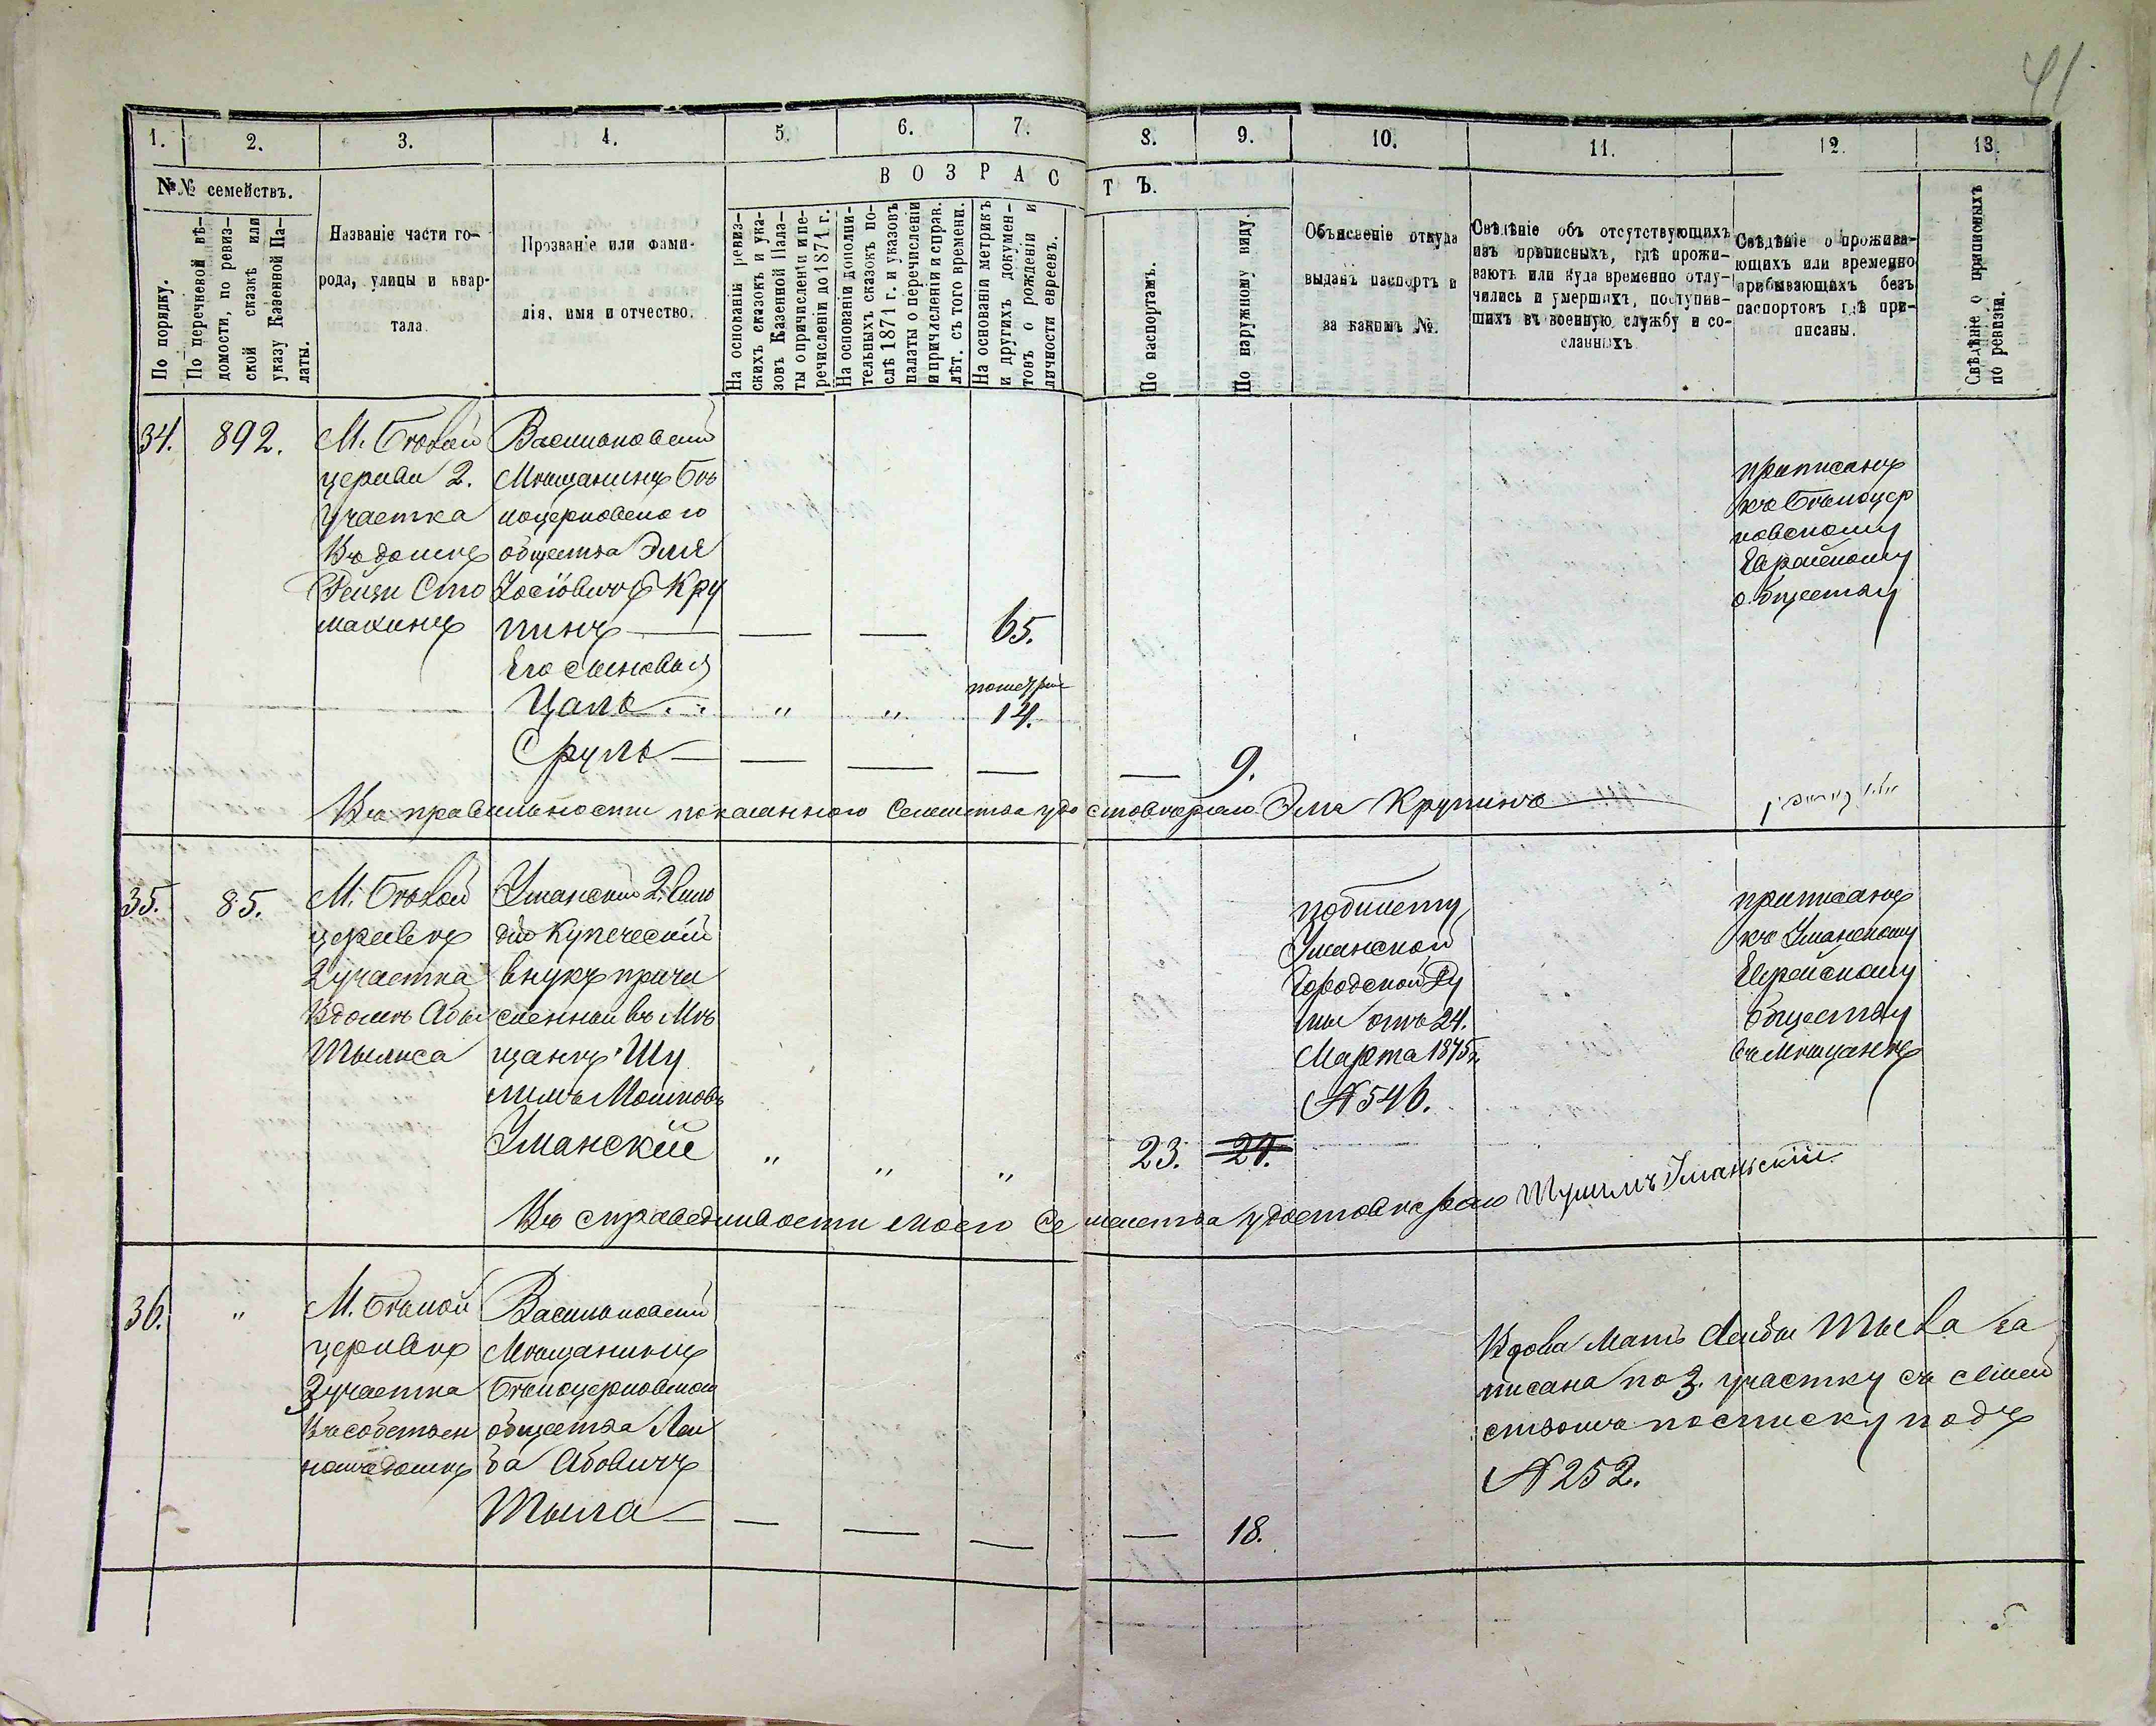 41
1. 2. 3. 4. 5. 6. 7. 8. 9. 10. 11. 12. 13.
№№ семействъ.
В О З Р А С Т Ъ.
По порядку.
По перечневой вѣ-
домости, по ревиз-
ской сказкѣ или
указу Казенной Па-
латы.
Названіе части го-
рода, улицы и квар-
тала.
Прозваніе или фами-
лія, имя и отчество.
На основаніи ревиз-
скихъ сказокъ и ука-
зовъ Казенной Пала-
ты о причисленіи и пе-
речисленіи до 1871 г.
На основаніи дополни-
тельныхъ сказокъ по-
слѣ 1871 г. и указовъ
палаты о перечисленіи
и причисленіи и справ.
лѣт. съ того времени.
На основаніи метрикъ
и другихъ докумен-
товъ о рожденіи и
личности евреевъ.
По паспортамъ.
По наружному виду.
Объясненіе откуда
выданъ паспортъ и
за какимъ №.
Свѣдѣніе объ отсутствующихъ
изъ приписныхъ, гдѣ прожи-
ваютъ или куда временно отлу-
чились и умершихъ, поступив-
шихъ въ военную службу и со-
сланныхъ
Свѣдѣніе о прожива-
ющихъ или временно
пребывающихъ безъ
паспортовъ гдѣ при-
писаны.
Свѣдѣніе о приписныхъ
по ревизіи.
34. 892.
М. Бѣлой
церкви 2.
участка
Въ домѣ
Рейзи Сто
макинъ
Васильковскій
Мѣщанинъ Бѣ
лоцерковскаго
общества Эля
Іосіовичъ Кру
пинъ — — — 65.
Его сыновья
пометрик
Цаль „ „ 14.
Сруль — — — — — 9.
приписанъ
къ Бѣлоцер
ковскому
Еврейскому
обществу
Въ правильности показаннаго Семейства удостовѣряю Эля Крупинъ
35. 85.
М. Бѣлой
церквѣ
2 участка
Въ домѣ Абы
Тылиса
Уманскій 2. Гиль
діи Купеческій
внукъ причи
сленный въ Мѣ
щанѣ Шу
лимъ Мошковъ
Уманскій „ „ „ 23. 24.
побилету
Уманской
Городской Ду
мы отъ 24.
Марта 1875г.
№ 546.
приписанъ
къ Уманскому
Еврейскому
обществу
въ мѣщанѣ
Въ справедливости моего Семейства удостовѣряю Шулимъ Уманьскій
36. „
М. Бѣлой
церквѣ
3 участка
Въ собствен
номъ домѣ
Васильковскій
Мѣщанинъ
Бѣлоцерковскаго
общества Лей
ба Абовичъ
Тыла — — — — — 18.
Вдова Мать Лейбы Тыла за
писана по 3. участку съ семей
ствомъ посписку подъ
№ 252.